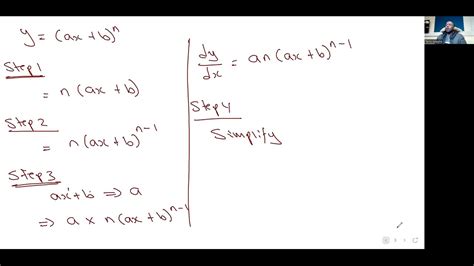 y = (ax + b)^n
Step 1
= n (ax + b)
Step 2
= n (ax + b)^{n-1}
Step 3
ax' + b ⇒ a
⇒ a x n (ax + b)^{n-1}
dy/dx = an (ax + b)^{n-1}
Step 4
Simplify